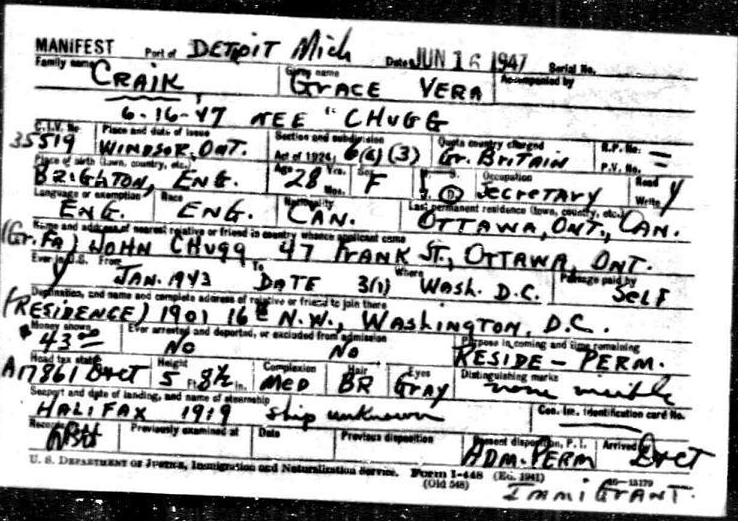 MANIFEST Port of DETROIT Mich Date JUN 16 1947 Serial No.
Family name CRAIK Given name GRACE VERA Accompanied by
6-16-47 NEE "CHUGG
C.I.V. No. 35519 Place and date of issue WINDSOR, ONT. Section and subdivision Act of 1924, 6(a)(3) Quota country charged Gr. BRITAIN R.P. No. P.V. No.
Place of birth (town, country, etc.) BRIGHTON, ENG. Age 28 Yrs. Mos. Sex F S. D Occupation Secretary Read Write Y
Language or exemption ENG. Race ENG. Nationality CAN. Last permanent residence (town, country, etc.) OTTAWA, ONT., CAN.
Name and address of nearest relative or friend in country whence applicant came
(Gr. Fa) JOHN CHUGG 47 FRANK ST., OTTAWA, ONT.
Ever in U.S. Y From JAN. 1943 To DATE 3(1) Where WASH. D.C. Passage paid by SELF
Destination, and name and complete address of relative or friend to join there
(RESIDENCE) 1901 16th N.W., WASHINGTON, D.C.
Money shown $43 Ever arrested and deported, or excluded from admission NO NO Purpose in coming and time remaining RESIDE - PERM.
Head tax status A17861 D+CT Height 5 Ft. 8½ In. Complexion MED Hair BR Eyes GRAY Distinguishing marks none visible
Seaport and date of landing, and name of steamship HALIFAX 1919 ship unknown Con. Im. Identification card No.
Previously examined at Date Previous disposition Present disposition, P.I. ADM. PERM Arrived D+CT
U. S. DEPARTMENT OF JUSTICE, Immigration and Naturalization Service. Form I-448 (Ed. 1941) (Old 548) 16-13179
IMMIGRANT.